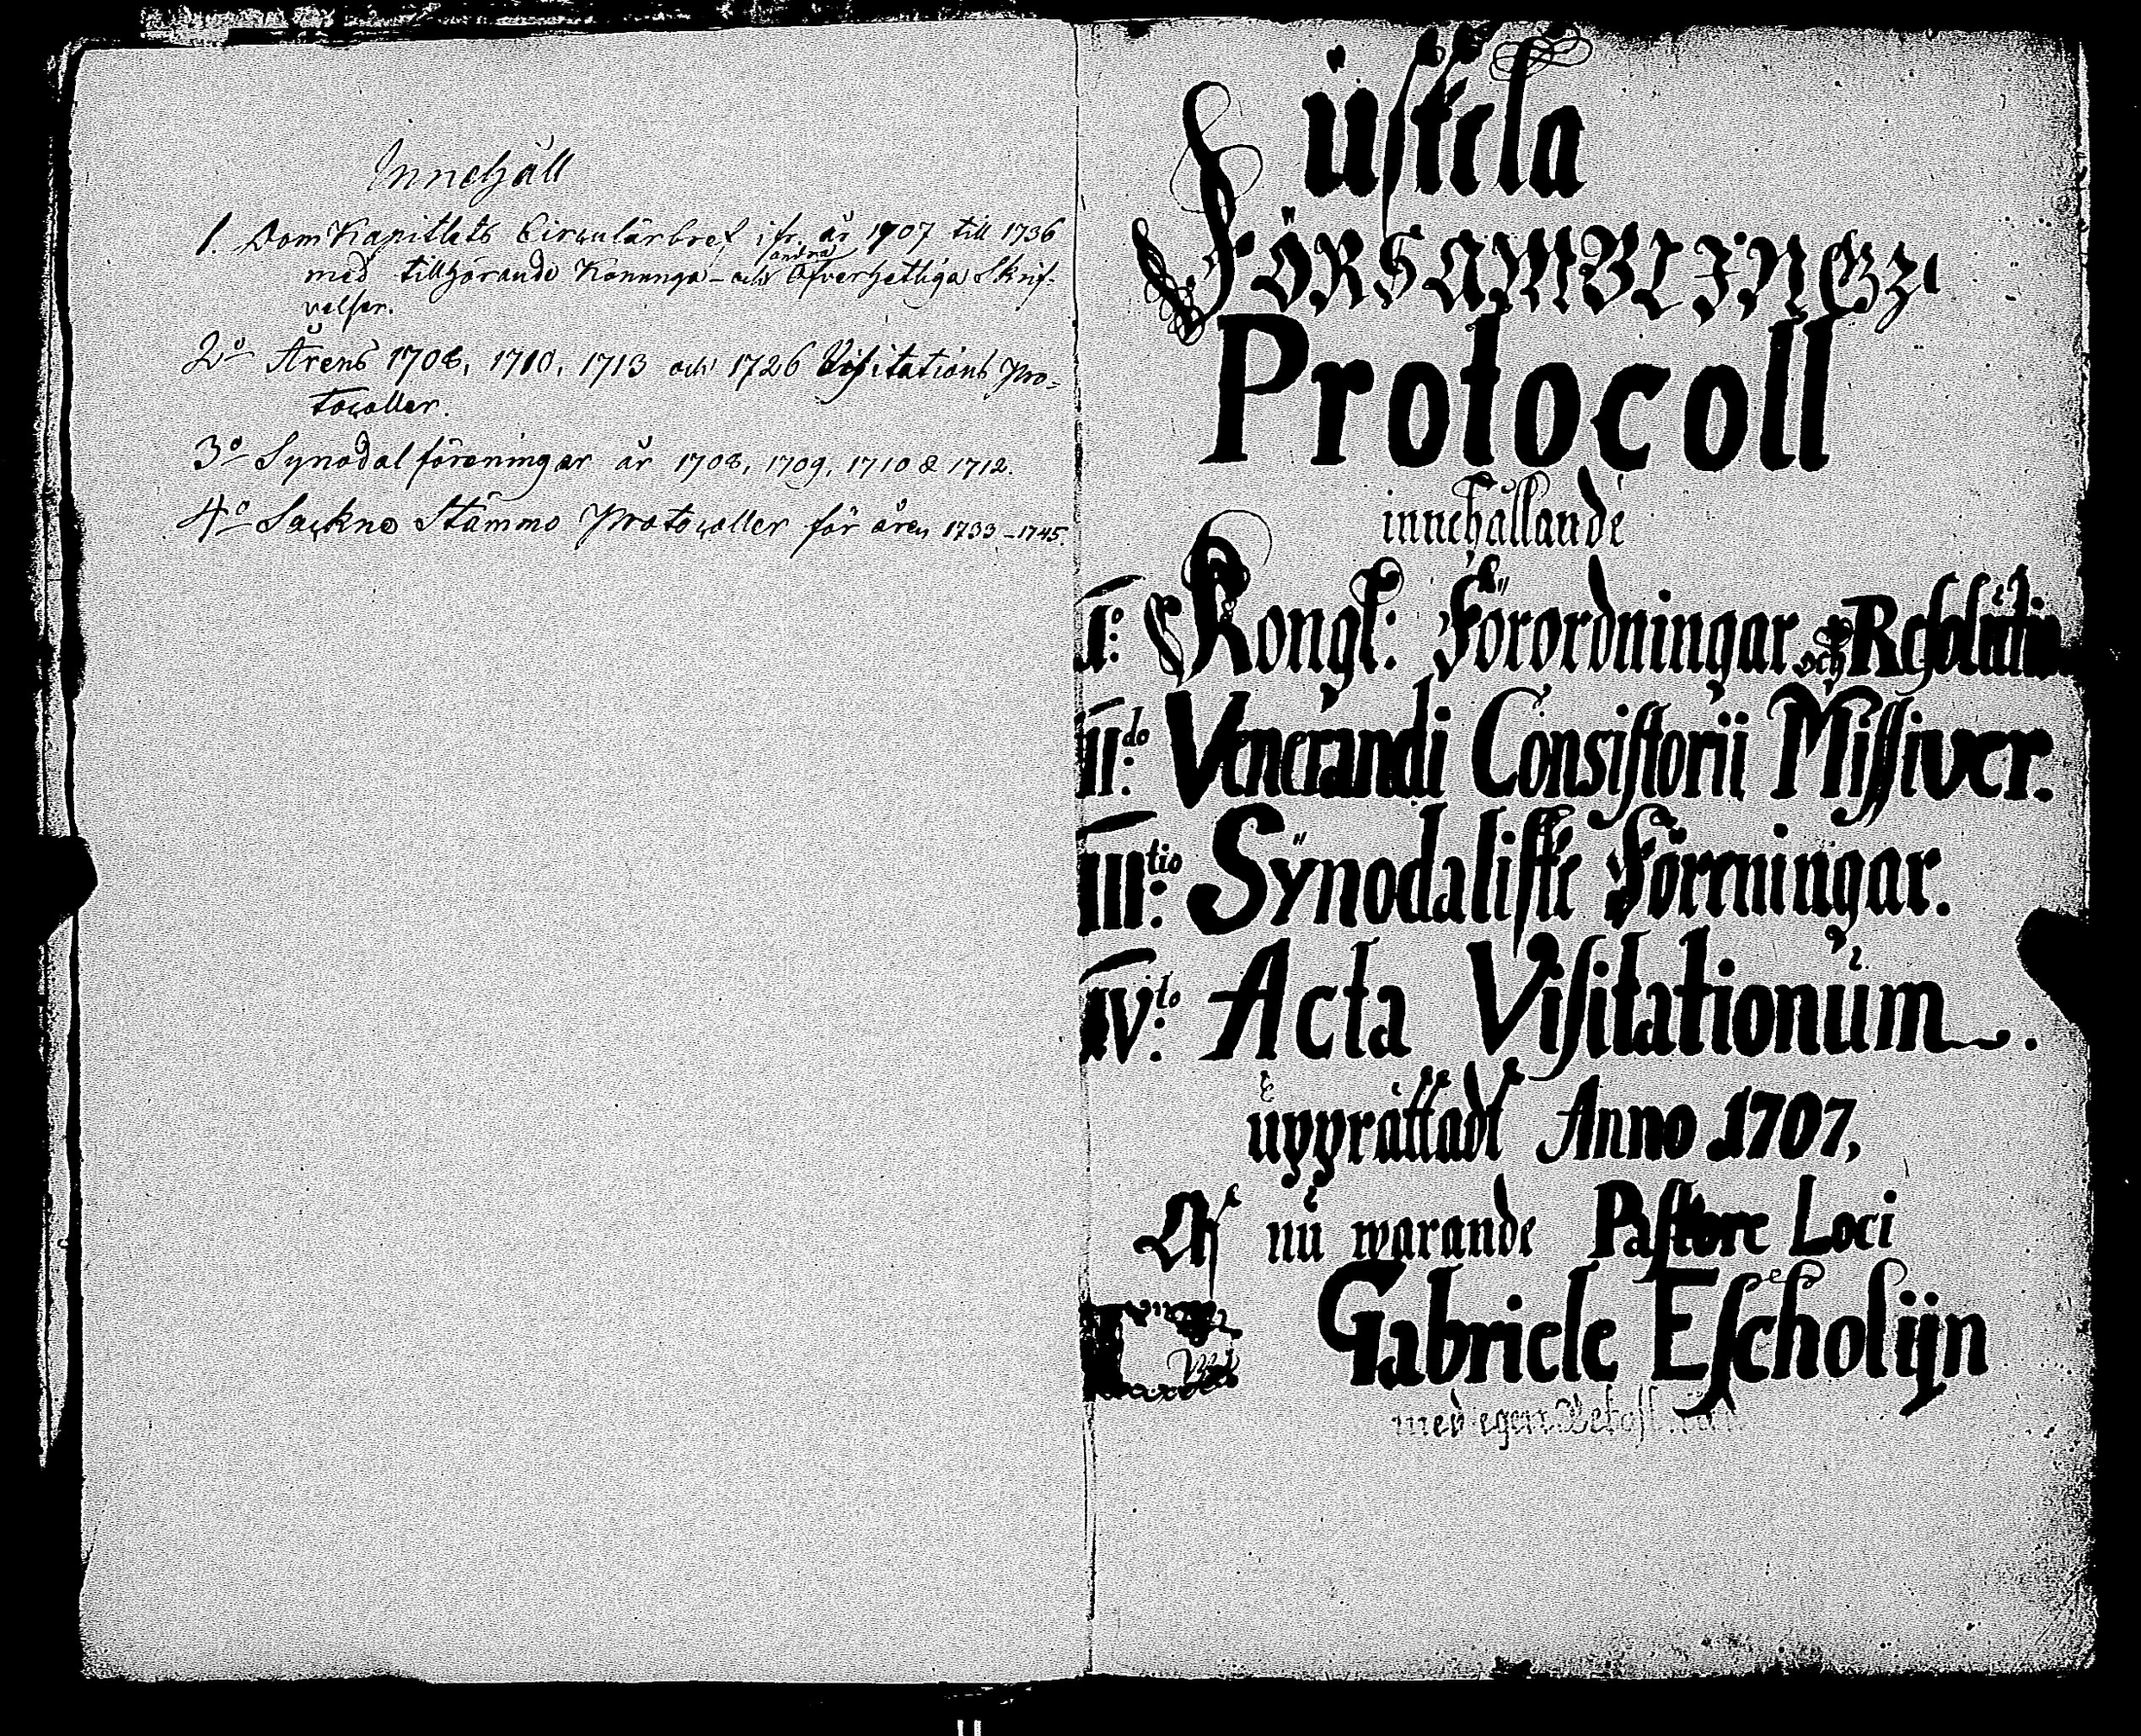 Innehåll
1. DomKapitlets Circulärbref ifr. år 1707 till 1736
andra
med tillhörande Konunga- och Öfverhetliga Skrif-
velser.
2o Årens 1708, 1710, 1713 och 1726 Visitations Pro-
tocoller.
3o Synodal föreningar år 1708, 1709, 1710 & 1712.
4o Sockne Stämmo Protocoller för åren 1733-1745.
üstela
FÖRSAMBLINGZ
Protocoll
innehållande
I:o Kongl: Förordningar och Resolutio
II:do Venerandi Consistorii Missiver.
III:tio Sÿnodaliske Föreningar.
IV:to Acta Visitationŭm.
ŭpprättadt Anno 1707,
Af nŭ warande Pastore Loci
Gabriele Escholijn
med egen Bekost